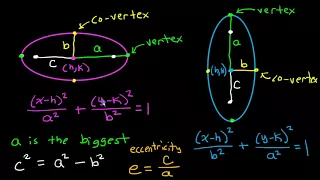 co-vertex
b
a
vertex
c
(h,k)
(x-h)²/a² + (y-k)²/b² = 1
a is the biggest
c² = a² - b²
eccentricity
e = c/a
vertex
a
(h,k)
b
co-vertex
c
(x-h)²/b² + (y-k)²/a² = 1